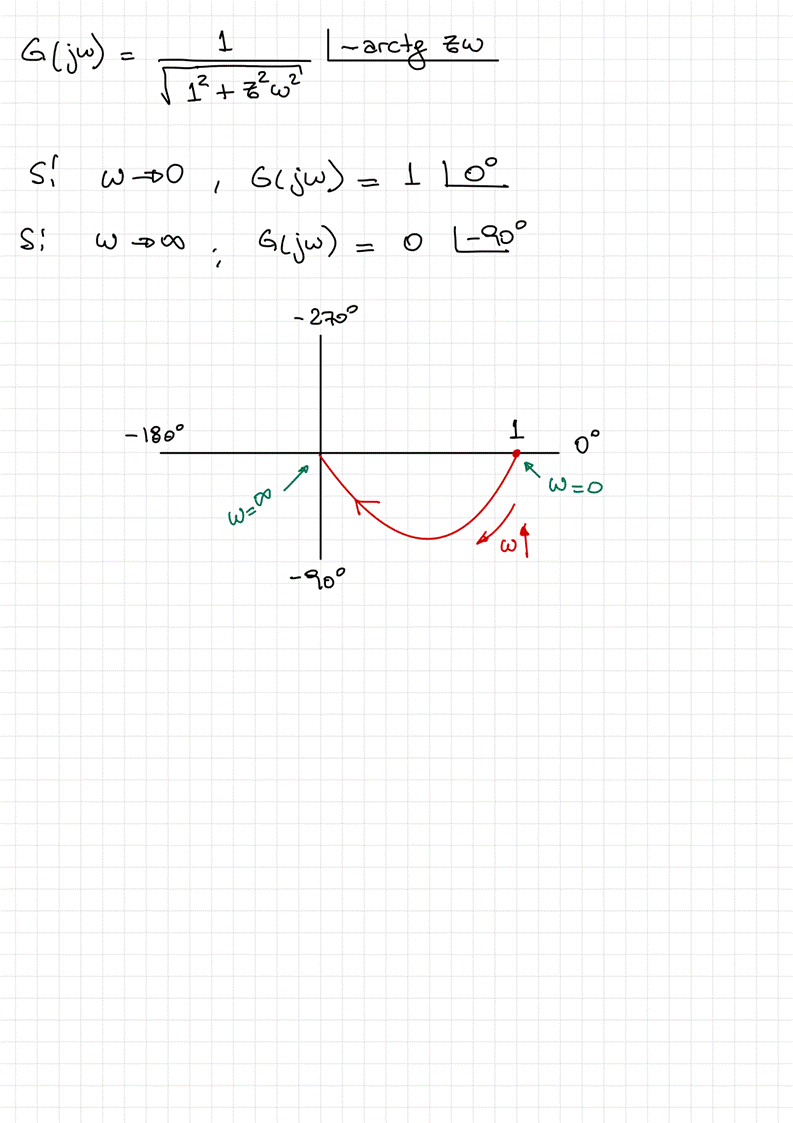 G(jω) = 1 / √(1² + z²ω²) ∠-arctg zω
Si ω→0 , G(jω) = 1 ∠0°
Si ω→∞ ; G(jω) = 0 ∠-90°
-270°
-180° 1 0°
ω=∞ ω=0
ω↑
-90°